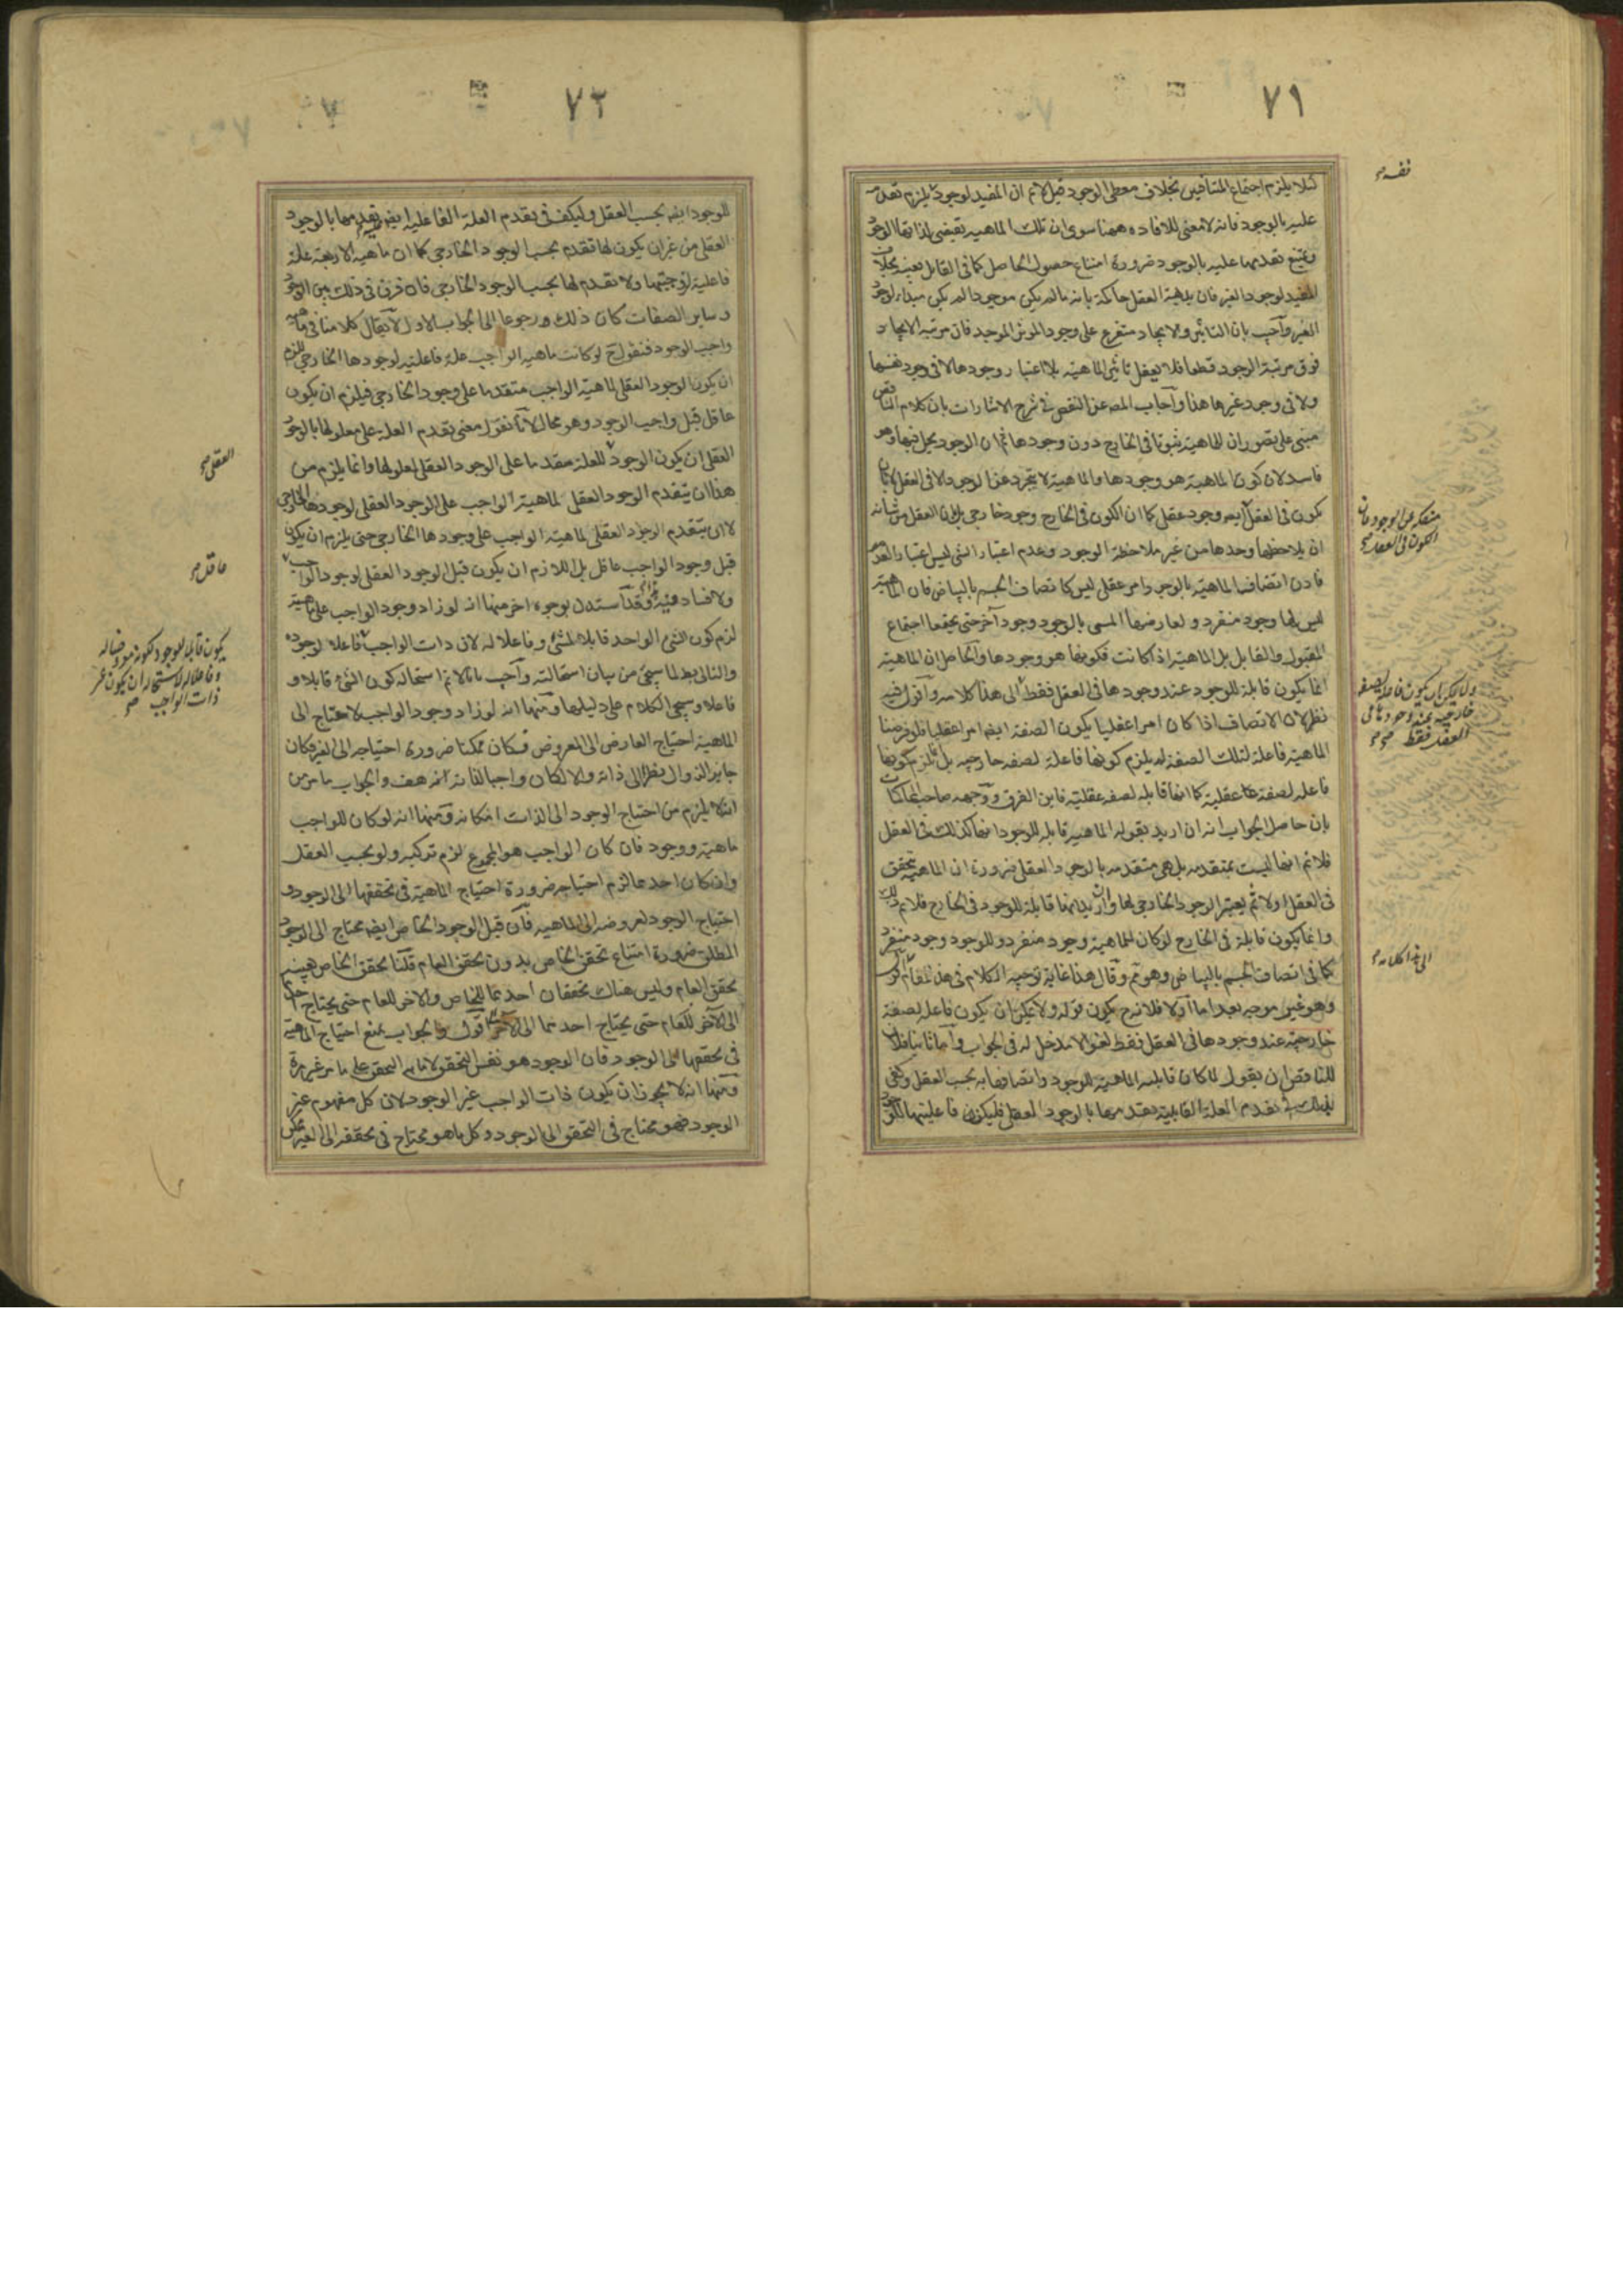 ٧١
لئلا يلزم اجتماع المتنافيين بخلاف معطى الوجود قيل لا نم ان المفيد لوجود يلزم تقدمه
عليه بالوجود فانه لا معنى للافاده ههنا سوى ان تلك الماهيه تقتضى لذاتها الوجود
ويمتنع تقدمها عليه بالوجود ضرورة امتناع حصول الحاصل كما فى القابل بعينه بخلاف
المفيد لوجود الغير فان بديهة العقل حاكمة بانه مالم يكن موجودا لم يكن مبداء لوجود
الغير وآجيب بان التاثير والايجاد متفرع على وجود المؤثر الموجد فان مرتبه الايجاد
فوق مرتبة الوجود قطعا فلا يعقل تاثير الماهية بلا اعتبار وجودها لا فى وجود نفسها
ولا فى وجود غيرها هذا وآجاب المصه عن النقض فى شرح الاشارات بان كلام الناقض
مبنى على تصور ان للماهية ثبوتا فى الخارج دون وجودها ثم ان الوجود يحل فيها وهو
فاسد لان كون الماهية هو وجودها والماهية لا تتجرد عن الوجود الا فى العقل لا بان
يكون فى العقل ايضه وجود عقلى كما ان الكون فى الخارج وجود خارجى بل بان العقل من شانه
ان يلاحظها وحدها من غير ملاحظة الوجود وعدم اعتبار الشى ليس اعتبارا لعدمه
فاذن اتصاف الماهية بالوجود امر عقلى ليس كاتصاف الجسم بالبياض فان الماهية
ليس لها وجود منفرد ولعارضها المسمى بالوجود وجود آخر حتى يجتمعا اجتماع
المقبول والقابل بل الماهية اذا كانت فكونها هو وجودها والحاصل ان الماهية
انما يكون قابلة للوجود عند وجودها فى العقل فقط الى هذا كلامه وآقول فيه
نظر لان الاتصاف اذا كان امرا عقليا يكون الصفة ايضه امرا عقليا فلو فرضنا
الماهية فاعلة لتلك الصفة لم يلزم كونها فاعلة لصفه خارجيه بل يلزم كونها
فاعله لصفة عقلية كما انها قابله لصفه عقلية فاين الفرق ووجهه صاحب المحاكمات
بان حاصل الجواب انه ان اريد بقوله الماهية قابله للوجود انها كذلك فى العقل
فلا نم انها ليست بمتقدمه بل هى متقدمه بالوجود العقلى ضرورة ان الماهية يتحقق
فى العقل اولا ثم يعتبر الوجود الخارجى لها وان اريد انها قابلة للوجود فى الخارج فلا نم ذلك
وانما يكون قابلة فى الخارج لو كان للماهية وجود منفرد وللوجود وجود منفرد
كما فى اتصاف الجسم بالبياض وهو مم وقال هذا غاية توجيه الكلام فى هذا المقام
وهو غير موجه بعد اما آولا فلانه ح يكون قوله ولا يمكن ان يكون فاعله لصفة
خارجية عند وجودها فى العقل فقط لغوا لا مدخل له فى الجواب وآما ثانيا فلان
للناقض ان يقول لما كان قابلية الماهية للوجود واتصافها به بحسب العقل وكفى
لذلك فى تقدم العلة القابلية تقدمها بالوجود العقلى فليكن فاعليتها للوجود
نفسه صح
منفكه عن الوجود فان
الكون فى العقل صح
ولا يمكن ان يكون فاعلة لصفه
خارجية عند وجودها فى
العقل فقط صح
الى هذا كلامه
٧٢
للوجود ايضه بحسب العقل وليكف فى تقدم العلة الفاعليه ايضه تقدمها بالوجود
العقلى من غير ان يكون لها تقدم بحسب الوجود الخارجى كما ان ماهيه الاربعة علة
فاعلية لزوجيتها ولا تقدم لها بحسب الوجود الخارجى فان فرق فى ذلك بين الوجود
وساير الصفات كان ذلك ورجوعا الى الجواب الاول لآيقال كلامنا فى ماهيه
واجب الوجود فنقول ح لو كانت ماهيه الواجب علة فاعليه لوجودها الخارجى للزم
ان يكون الوجود العقلى لماهية الواجب متقدما على وجود الخارجى فيلزم ان يكون
عاقل قبل واجب الوجود وهو محال لآنا نقول معنى تقدم العلة على معلولها بالوجود
العقلى ان يكون الوجود للعلة مقدما على الوجود العقلى لمعلولها وانما يلزم من
هذا ان يتقدم الوجود العقلى لماهية الواجب على الوجود العقلى لوجودها الخارجى
لا ان يتقدم الوجود العقلى لماهية الواجب على وجودها الخارجى حتى يلزم ان يكون
قبل وجود الواجب عاقل بل اللازم ان يكون قبل الوجود العقلى لوجود الواجب
ولا فساد فيه وقد آستدل بوجوه اخر منها انه لو زاد وجود الواجب على ماهيته
لزم كون الشئ الواحد قابلا لشئ وفاعلا له لان ذات الواجب فاعلا لوجوده
والتالى بط لما سيجئ من بيان استحالته وآجيب بانا لا نم استحاله كون الشئ قابلا و
فاعلا وسيجئ الكلام على دليلها ومنها انه لو زاد وجود الواجب لاحتاج الى
الماهية احتياج العارض الى المعروض فكان ممكنا ضرورة احتياجه الى الغير فكان
جايز الزوال نظرا الى ذاته والا لكان واجبا لذاته هف والجواب ما مر من
انه لا يلزم من احتياج الوجود الى الذات امكانه ومنها انه لو كان للواجب
ماهية ووجود فان كان الواجب هو المجموع لزم تركبه ولو بحسب العقل
وان كان احدهما لزم احتياجه ضرورة احتياج الماهية فى تحققها الى الوجود و
احتياج الوجود لعروضه الى الماهيه فآن قيل الوجود الخاص ايضه محتاج الى الوجود
المطلق ضرورة امتناع تحقق الخاص بدون تحقق العام قلنا تحقق الخاص بعينه
تحقق العام وليس هناك تحققان احدهما للخاص والآخر للعام حتى يحتاج
الى الآخر للعام حتى يحتاج احدهما الى الآخر آقول والجواب بمنع احتياج الماهية
فى تحققها الى الوجود فان الوجود هو نفس التحقق لا ما به التحقق على ما مر غير مرة
ومنها انه لا يجوز ان يكون ذات الواجب غير الوجود لان كل مفهوم غير
الوجود فهو محتاج فى التحقق الى الوجود وكل ما هو محتاج فى تحققه الى الغير ممكن
العقلى صح
عاقل صح
يكون قابلا للوجود لكونه معروضا له
وفاعلا له لاستحالة ان يكون غير
ذات الواجب صح